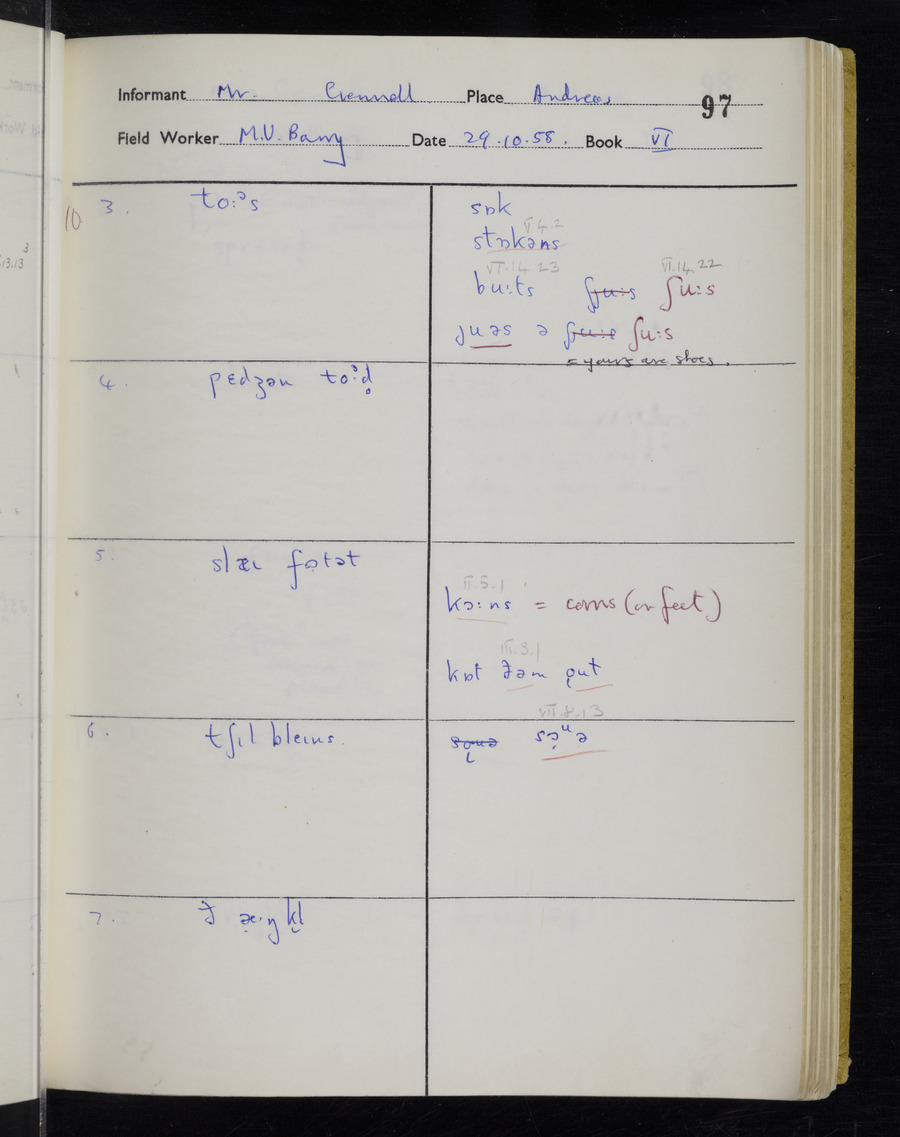 Informant Mr. Crennell Place Andreas 97
Field Worker M.V. Barry Date 29.10.58. Book VI
10 3. to:ᵊs
sɒk
V 4.2
stɒkəns
VI.14.23 VI.14.22
bu:ts ʃu:s ʃu:s
juəs ə ʃu:s ʃu:s
= yours are shoes.
4. pɛdʒən to:ᵊd̥
5. slæɪ fọtət
II.5.1
kɔ:ns = corns (on feet)
III.3.1
kɒt ðəm ǫut
VII.8.13
6. tʃɪl bleɪns.
sǫuə sǫᵘə
7. ð æ·ŋkl
3
13.13